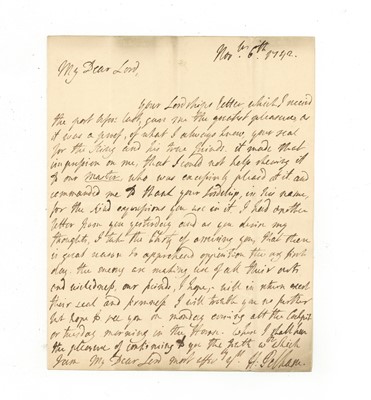 Nov.br 6th 1742.
My Dear Lord,
your Lordships letter, which I receivd
the post before last, gave me the greatest pleasure, as
it was a proof, of what I always knew, your zeal
for the King and his true friends. it made that
impression on me, that I could not help shewing it
to our Master who was excessively pleased at it and
commanded me to thank your Lordship, in his name
for the kind expressions you use in it. I had another
letter from you yesterday and as you desire my
thoughts, I take the liberty of assuring you, that there
is great reason to apprehend opposition the very first
day. the enemy are making use of all their arts
and wickedness. our friends, I hope, will in return exert
their zeal and prowess. I will trouble you no further
but hope to see you on monday evening att the Cockpit
or tuesday morning in the House. when I shall have
the pleasure of continuing to you the with which
I am My Dear Lord most affec: yrs H. Pelham.